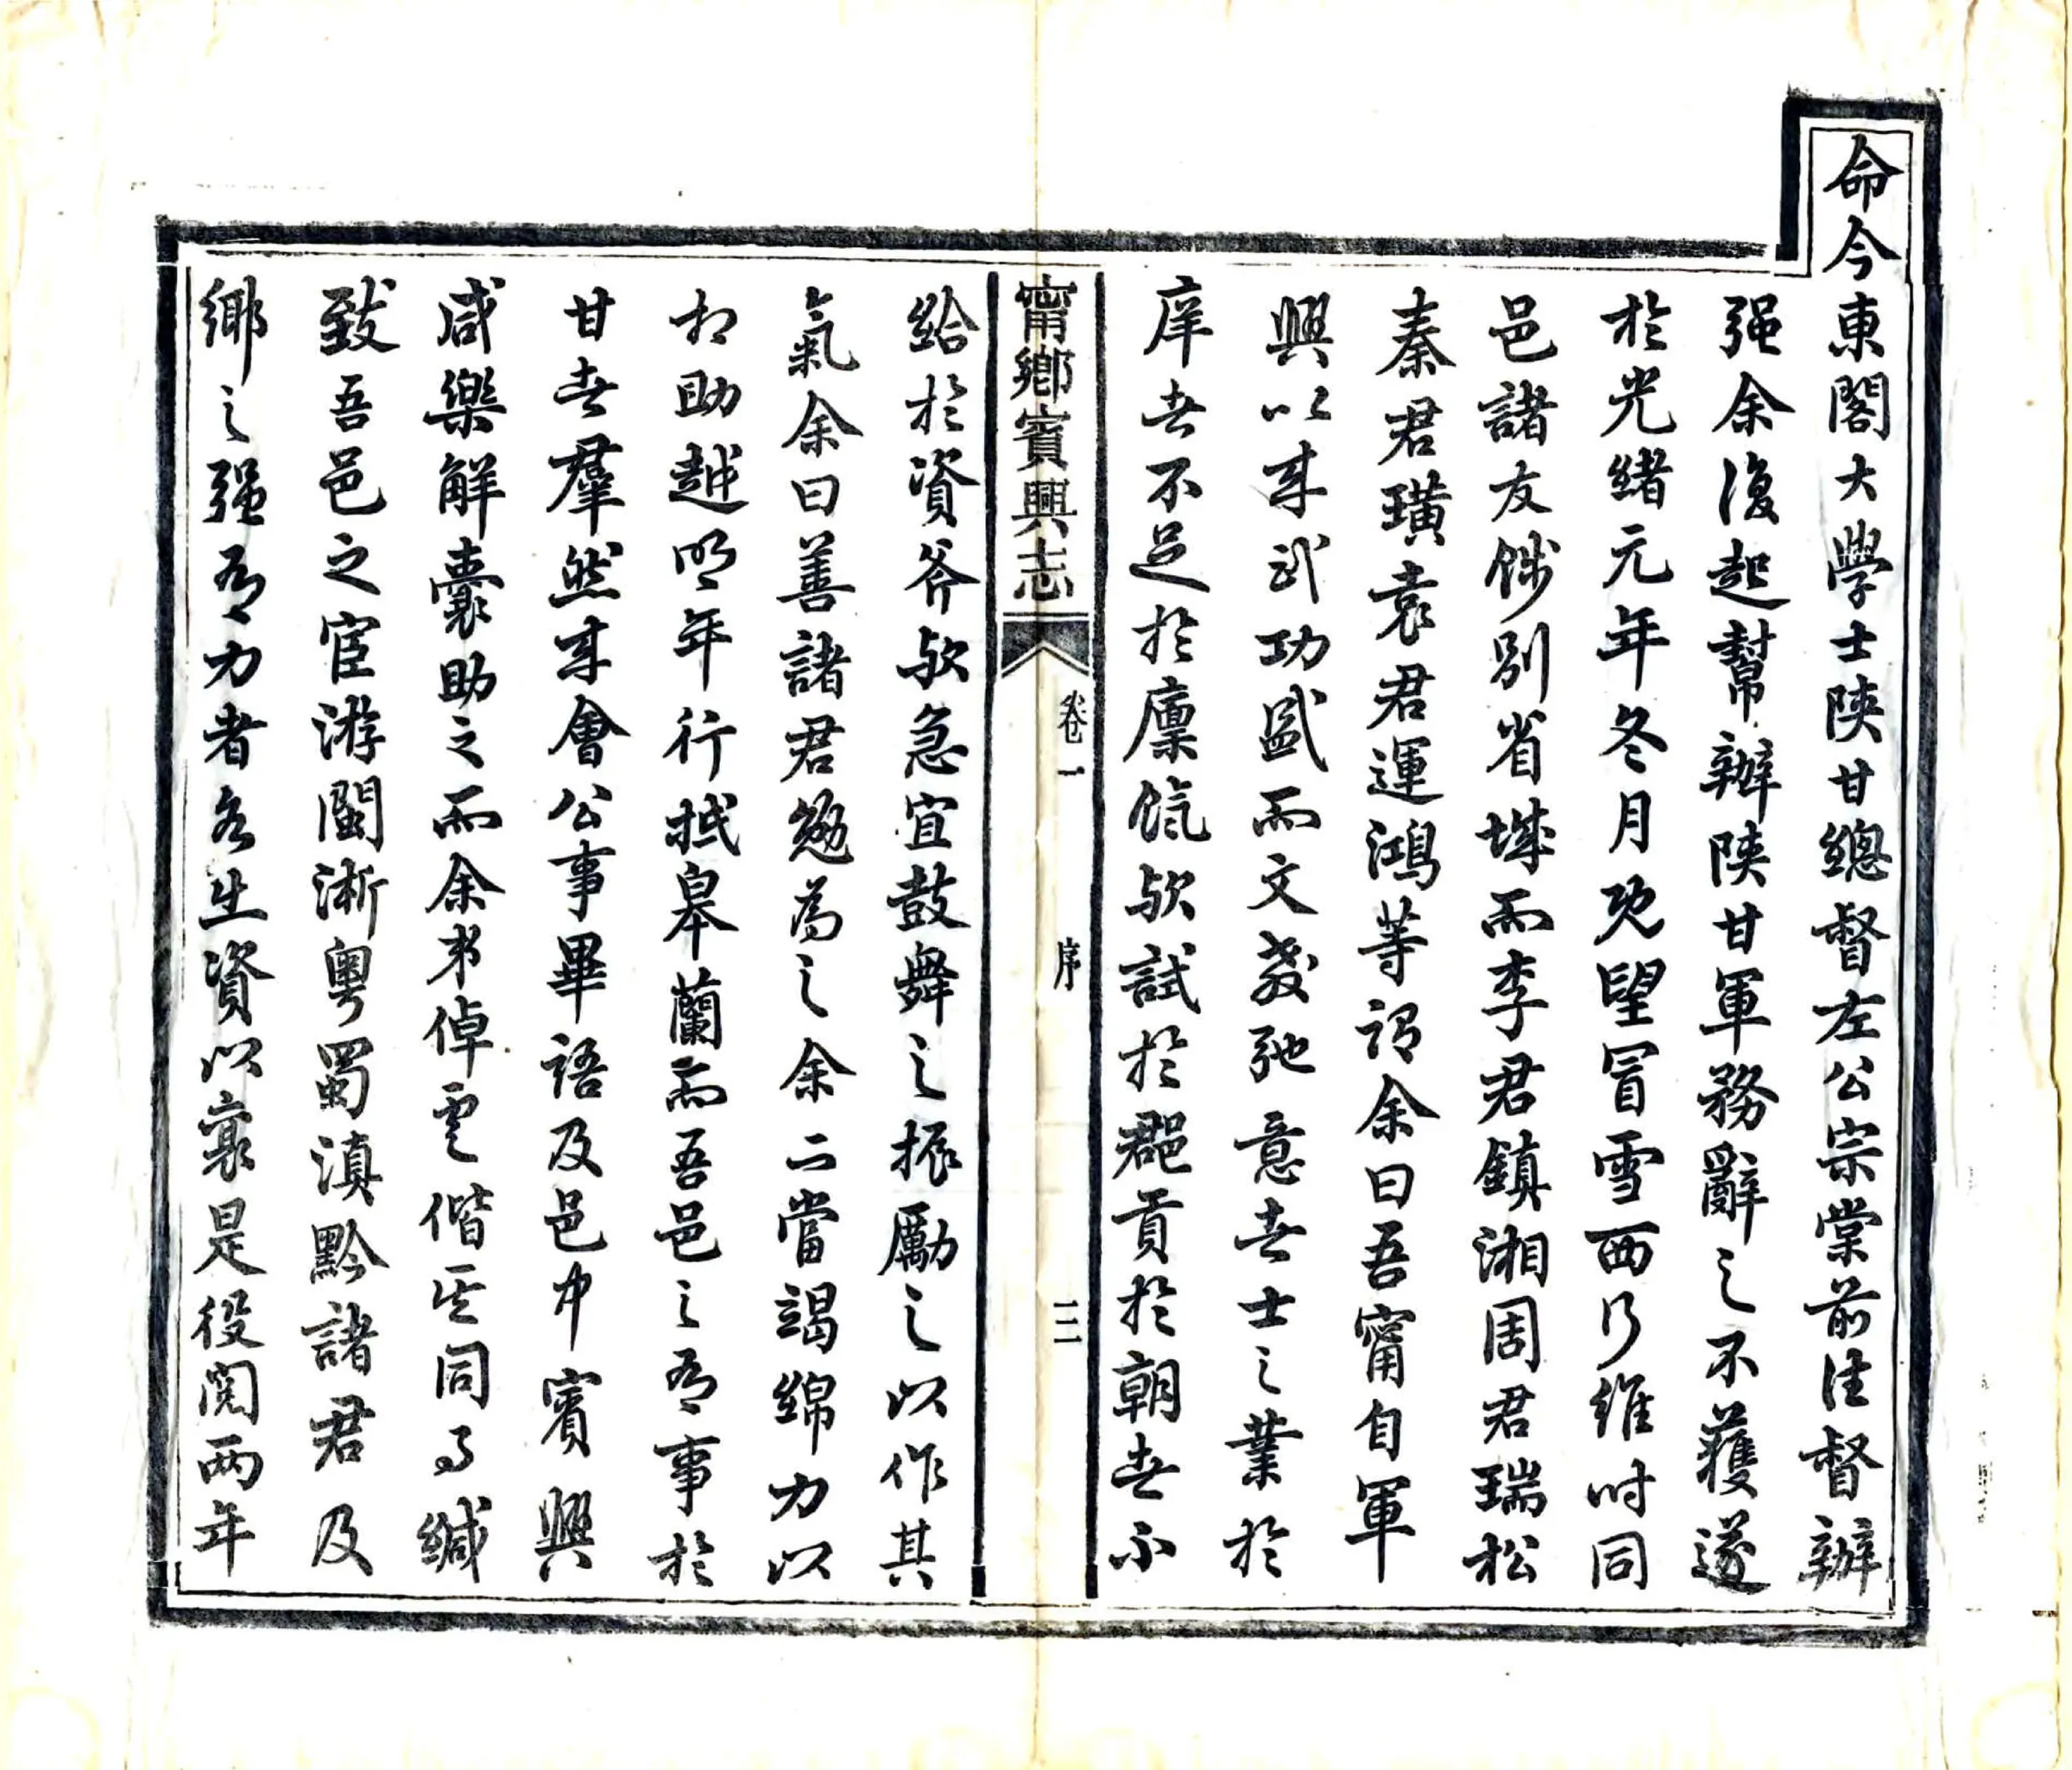 命今東閣大學士陝甘總督左公宗棠前往督辦
强余復起幫辦陝甘軍務辭之不獲遂
於光緒元年冬月既望冒雪西行維時同
邑諸友餞別省城而李君鎮湘周君瑞松
秦君璜袁君運鴻等謂余曰吾甯自軍
興以來武功盛而文教弛意者士之業於
庠者不足於廩餼歟試於郡貢於朝者不
甯鄉賓興志
卷一
序
三
給於資斧歟急宜鼓舞之振勵之以作其
氣余曰善諸君勉為之余亦當竭綿力以
相助越明年行抵皋蘭而吾邑之有事於
甘者羣然來會公事畢語及邑中賓興
咸樂解囊助之而余弟倬雲偕其同事緘
致吾邑之宦游閩浙粵蜀滇黔諸君及
鄉之强有力者各出資以襄是役閱兩年